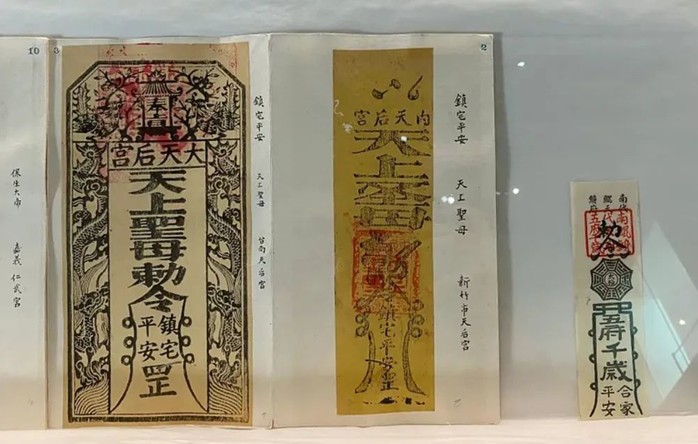 10
保生大帝 嘉義 仁武宮
3
奉旨
大天后宮
天上聖母勅令
鎮宅
平安
罡
鎮宅平安 天上聖母 台南天后宮
2
內天后宮
天上聖母勅令
鎮宅平安罡
鎮宅平安 天上聖母 新竹市天后宮
勅令
五府千歲
合家
平安